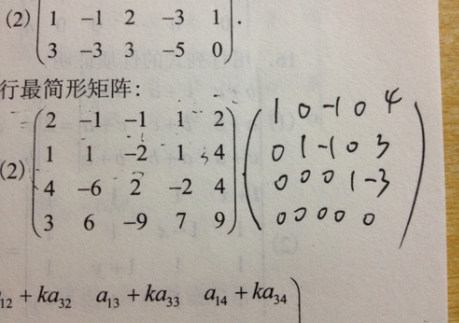 (2) 1 -1 2 -3 1 .
3 -3 3 -5 0
行最简形矩阵:
2 -1 -1 1 2
1 1 -2 1 4
(2)
4 -6 2 -2 4
3 6 -9 7 9
1 0 -1 0 4
0 1 -1 0 3
0 0 0 1 -3
0 0 0 0 0
12 + ka32 a13 + ka33 a14 + ka34